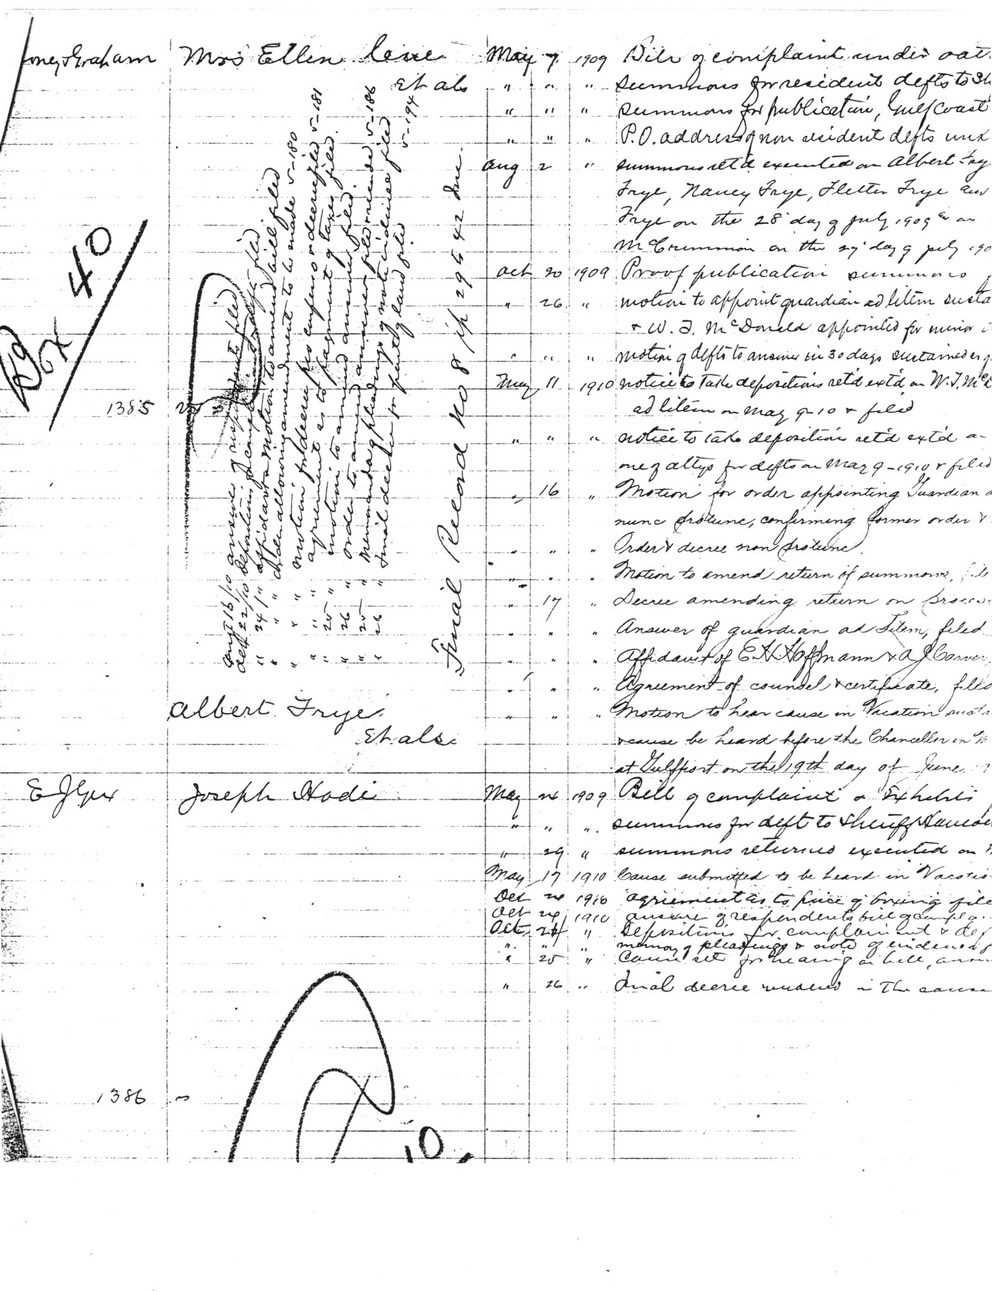 ney & Graham Mrs Ellen
Et als
May 7 1909 Bill of complaint under oat
" " " summons for resident defts to
" " " summons for publication, Gulfcoast
" " " P.O. address of non resident defts
Aug 2 " summons ret'd executed on Albert
Frye, Nancy Frye, Fletter Frye and
Frye on the 28 day of July 1909
McCrummon on the 29 day of July 190
Oct 20 1909 Proof publication summons
" 26 " motion to appoint guardian ad litem susta
& W. T. McDonald appointed for minor
" " " motion of defts to answer in 30 days sustained
May 11 1910 notice to take depositions ret'd ext'd on W.T. McD
ad litem on May 9-10 & filed
" " " notice to take deposition ret'd ext'd
one of attys for defts on May 9-1910 & filed
" 16 " Motion for order appointing Guardian
nunc protunc, confirming former order &
" " " Order & decree non protunc
" " " Motion to amend return of summons,
" 17 " Decree amending return on process
" " " Answer of guardian ad litem, filed
" " " Affidavit of E H Hoffmann & A J Carver,
" " " Agreement of counsel & certificate, filed
" " " Motion to hear cause in Vacation susta
& cause be heard before the Chancellor in
at Gulfport on the 19th day of June
Box 40
1385 vs
Aug 16/10 answer of filed
Oct 22/10 Deposition of filed
" 24 " affidavit & motion to amend bill filed
" " " Order allowing amendment to be made v-180
" " " motion for decree pro confesso & decree filed v-181
" " " agreement as to payment of taxes filed
" 25 " motion to amend answer filed
" 26 " order to amend answer filed minutes v-186
" 25 " Memo of pleadings & note of evidence filed
" 26 " Final decree for partly land filed v-194
Final Record No 8 pp 29 & 42 Inc.
Albert Frye
Et als
E J Gex Joseph
May 24 1909 Bill of complaint & Exhibits
" " " summons for deft to Sheriff Hancock
" 29 " summons returned executed on
May 17 1910 Cause submitted to be heard in Vacatio
Oct 24 1910 agreement as to price of boxing file
Oct 24 1910 answer of respondents bill of compla
Oct. 24 " Depositions for complainant & def
" " " memo of pleadings & note of evidence f
" 25 " Cause set for hearing on bill, answ
" 26 " Final decree rendered in the cause
1386 vs
10